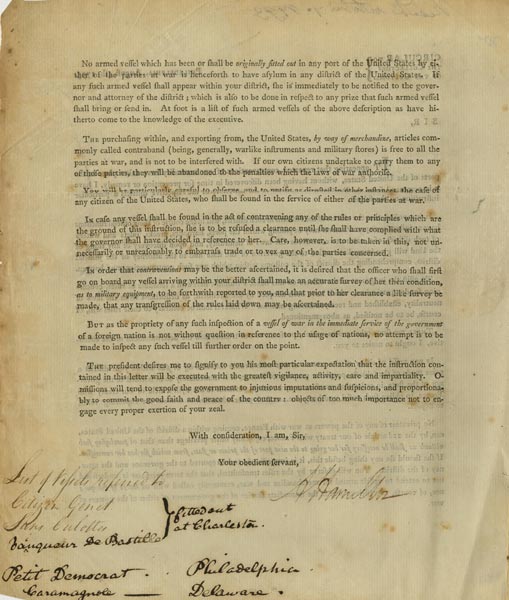 No armed vessel which has been or shall be originally fitted out in any port of the United States by ei-
ther of the parties at war is henceforth to have asylum in any district of the United States. If
any such armed vessel shall appear within your district, she is immediately to be notified to the gover-
nor and attorney of the district; which is also to be done in respect to any prize that such armed vessel
shall bring or send in. At foot is a list of such armed vessels of the above description as have hi-
therto come to the knowledge of the executive.
THE purchasing within, and exporting from, the United States, by way of merchandise, articles com-
monly called contraband (being, generally, warlike instruments and military stores) is free to all the
parties at war, and is not to be interfered with. If our own citizens undertake to carry them to any
of those parties, they will be abandoned to the penalties which the laws of war authorise.
You will be particularly careful to observe, and to notify as directed in other instances, the case of
any citizen of the United States, who shall be found in the service of either of the parties at war.
IN case any vessel shall be found in the act of contravening any of the rules or principles which are
the ground of this instruction, she is to be refused a clearance until she shall have complied with what
the governor shall have decided in reference to her. Care, however, is to be taken in this, not un-
necessarily or unreasonably to embarrass trade or to vex any of the parties concerned.
IN order that contraventions may be the better ascertained, it is desired that the officer who shall first
go on board any vessel arriving within your district shall make an accurate survey of her then condition,
as to military equipment, to be forthwith reported to you, and that prior to her clearance a like survey be
made, that any transgression of the rules laid down may be ascertained.
BUT as the propriety of any such inspection of a vessel of war in the immediate service of the government
of a foreign nation is not without question in reference to the usage of nations, no attempt is to be
made to inspect any such vessel till further order on the point.
THE president desires me to signify to you his most particular expectation that the instruction con-
tained in this letter will be executed with the greatest vigilance, activity, care and impartiality. O-
missions will tend to expose the government to injurious imputations and suspicions, and proportiona-
bly to commit the good faith and peace of the country: objects of too much importance not to en-
gage every proper exertion of your zeal.
With consideration, I am, Sir,
Your obedient servant,
A Hamilton
List of Vessels referred to
Citizen Genet
Sans Culottes } fitted out
Vainqueur De Bastille at Charleston.
Petit Democrat . Philadelphia
Caramagnole — Delaware .